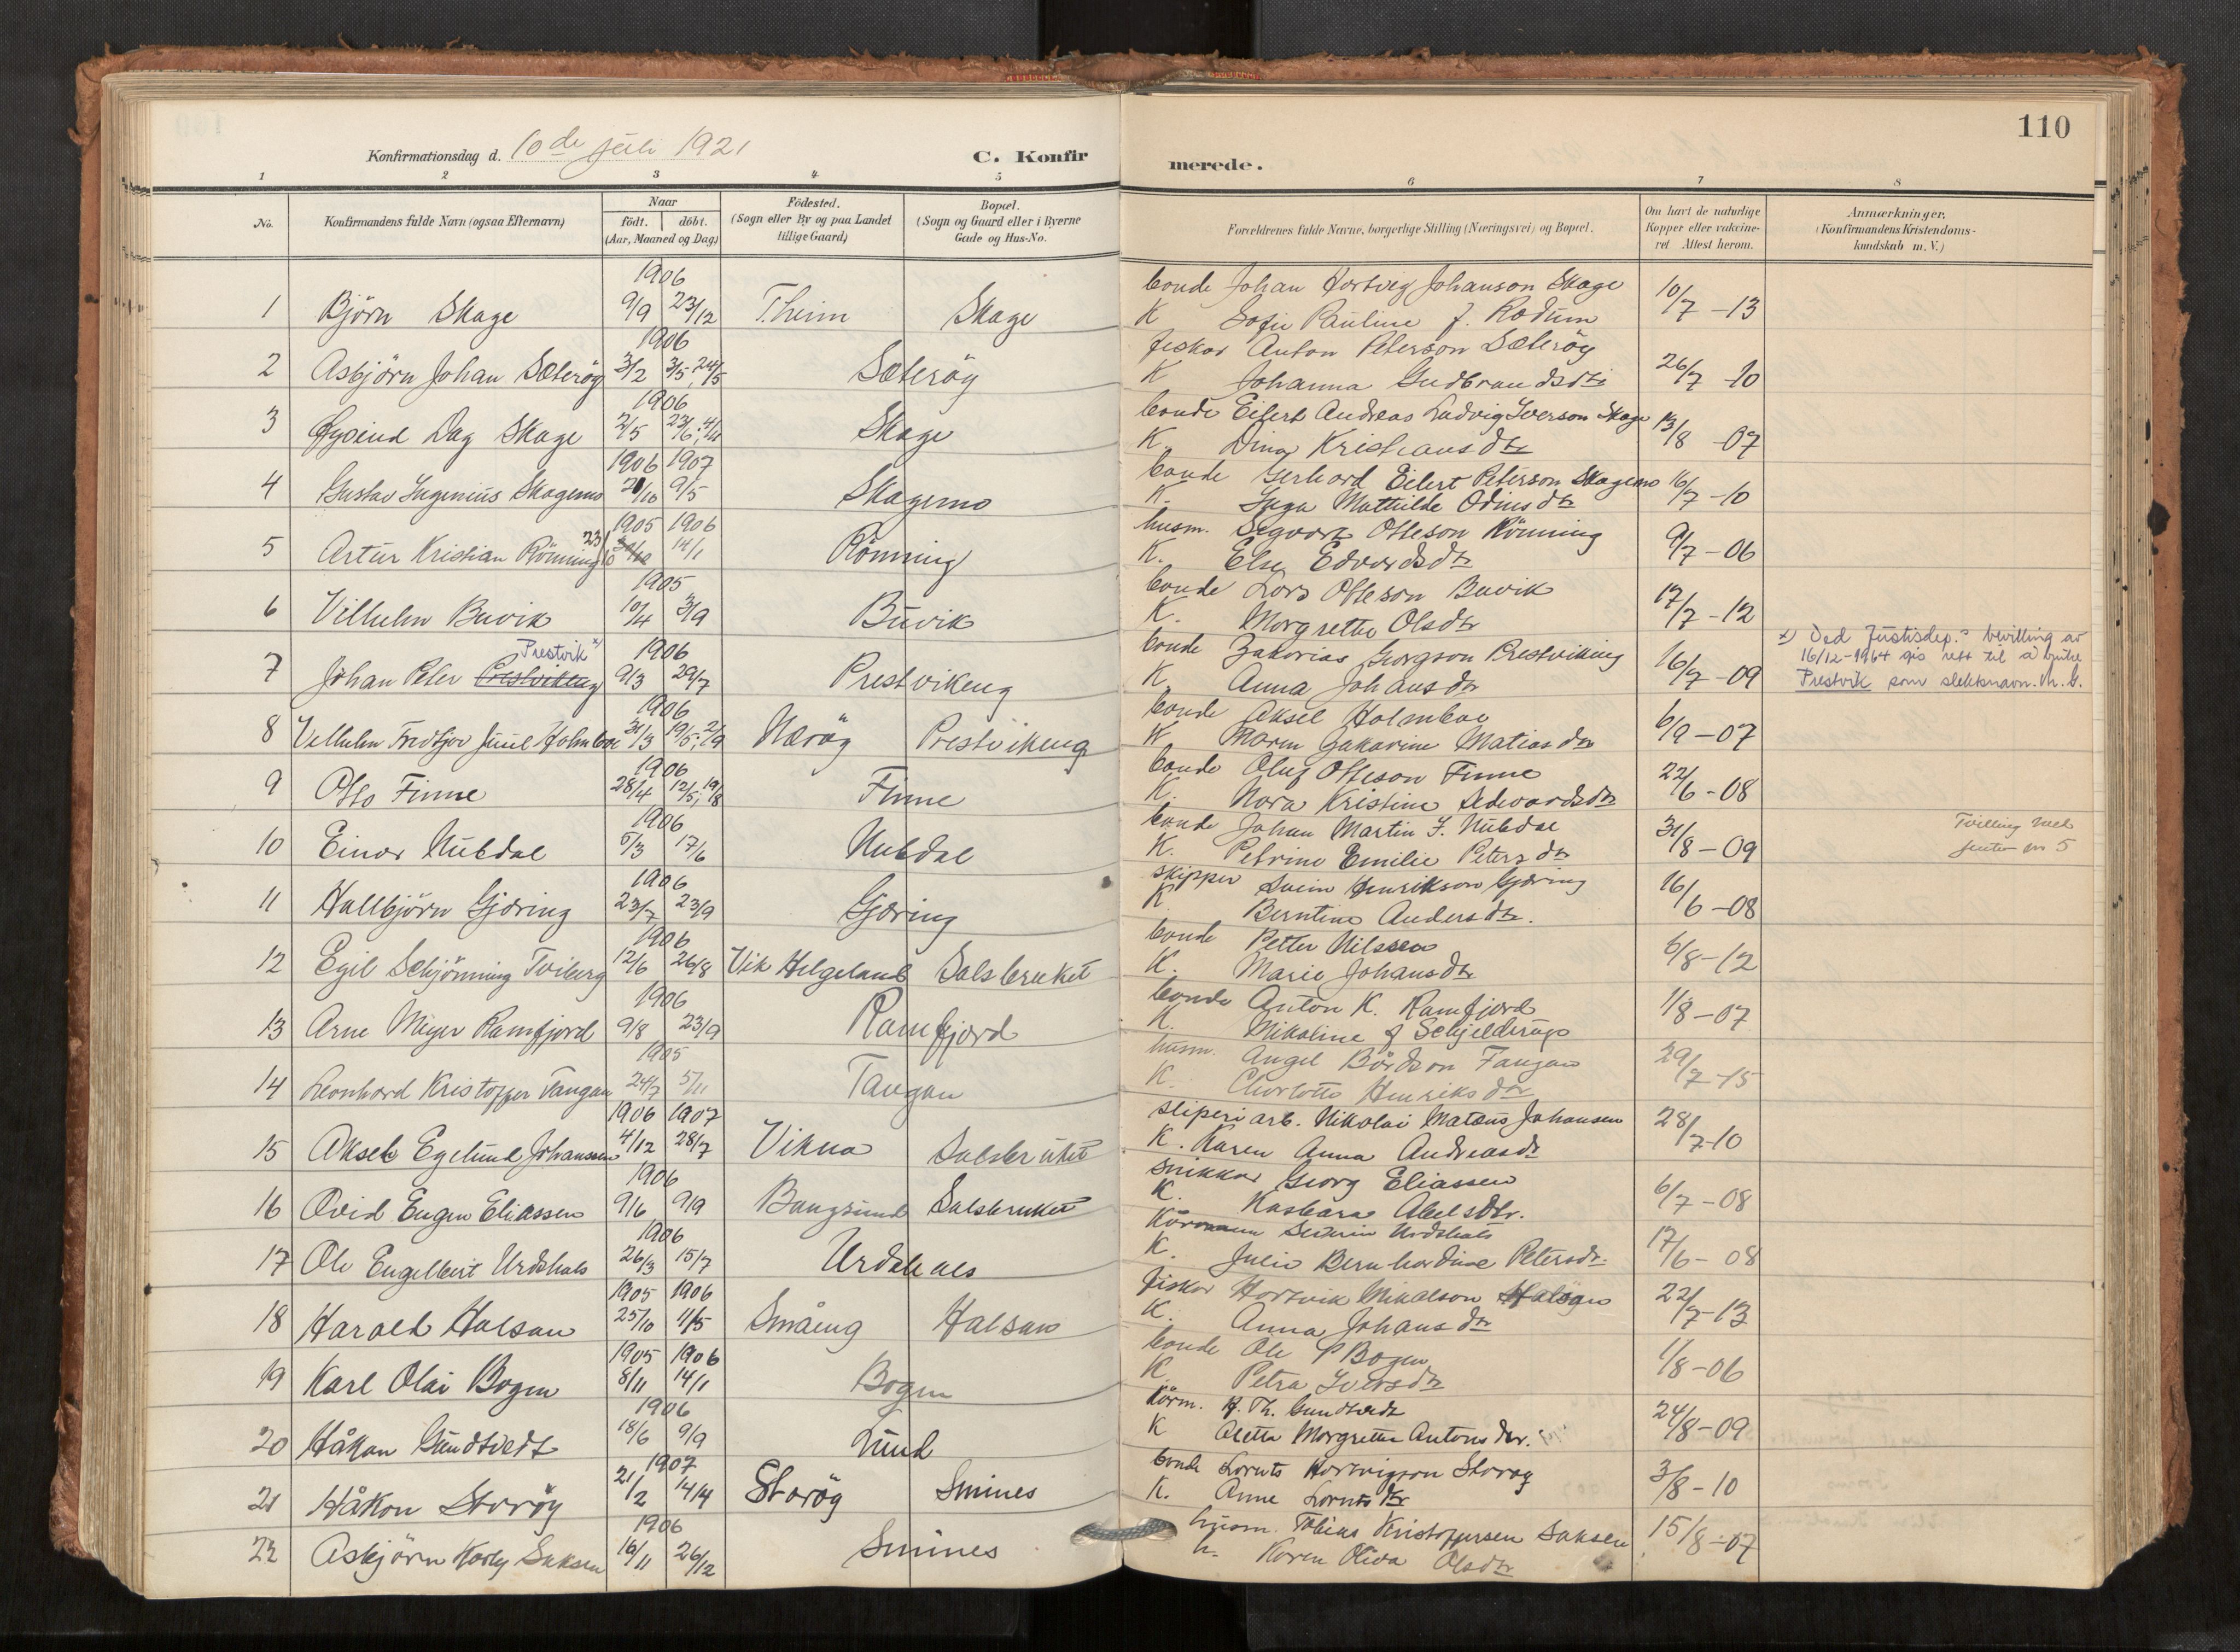 110
Konfirmationsdag d. 10de juli 1921
C. Konfirmerede.
1 2 3 4 5 6 7 8
No.
Konfirmandens fulde Navn (ogsaa Efternavn)
Naar
født. døbt.
(Aar, Maaned og Dag)
Fødested.
(Sogn eller By og paa Landet
tillige Gaard)
Bopæl.
(Sogn og Gaard eller i Byerne
Gade og Hus-No.
Forældrenes fulde Navne, borgerlige Stilling (Næringsvei) og Bopæl.
Om havt de naturlige
Kopper eller vakcine-
ret Attest herom.
Anmærkninger,
(Konfirmandens Kristendoms-
kundskab m. V.)
1906 bonde Johan Hartvig Johanson Skage
1 Björn Skage 9/9 23/12 T.heim Skage K Sofie Pauline f. Rodum 10/7-13
1906 fisker Anton Peterson Sæteröy
2 Asbjörn Johan Sæteröy 3/2 3/5, 24/5 Sæteröy K Johanna Gudbrandsdtr 26/7-10
1906 bonde Eilert Andreas Ludvig Iverson Skage
3 Øyvind Dag Skage 2/5 Skage K. Dina Kristiansdtr 13/8-07
1906 1907 bonde Gerhard Eilert Peterson Skagemo
4 Gustav Ingenius Skagemo 9/5 Skagemo K. Inga Mathilde Odinsdtr 16/7-10
1905 1906 husm. Sigvart Otteson Rönning
5 Artur Kristian Rönning 23/ 14/1 Rönning K. Else Edvardsdtr 9/7-06
1905 bonde Lars Otteson Buvik
6 Vilhelm Buvik 10/4 3/9 Buvik K. Margrethe Olsdtr 17/7-12
Prestvik x) 1906 bonde Zakarias Georgson Prestvikeng
7 Johan Peter Prestvikeng 9/3 29/7 Prestvikeng K. Anna Johansdtr 16/7-09
x) Ved Justisdep.s bevilling av
16/12-1964 gis rett til å bruke
Prestvik som slektsnavn.
1906 bonde Aksel Holmboe
8 Vilhelm Fridtjov Juul Holmboe 31/3 19/5; 2/9 Nærøy Prestvikeng K Maren Jakarine Matiasdtr 6/9-07
1906 bonde Oluf Otteson Finne
9 Otto Finne 28/4 12/5; 19/8 Finne K. Nora Kristine Sedvardsdtr 22/6-08
1906 bonde Johan Martin J. Nubdal
10 Einar Nubdal 5/3 17/6 Nubdal K. Petrine Emilie Petersdtr 31/8-09
Tvilling med
jente nr 5
1906 skipper Svein Henrikson Gjæring
11 Hallbjörn Gjæring 23/7 23/9 Gjæring K Berntine Andersdtr. 16/6-08
1906 bonde Petter Nilssen
12 Egil Schjönning Tviberg 12/6 26/8 Vik Helgeland Salsbruket K. Marie Johansdtr 6/8-12
1906 bonde Anton K. Ramfjord
13 Arne Meyer Ramfjord 9/8 23/9 Ramfjord K. Nikoline f Schjelderup 1/8-07
1905 husm. Angel Bårdson Tangan
14 Leonhard Kristoffer Tangan 24/7 5/11 Tangan K. Charlotte Henriksdtr 29/7-15
1906 1907 sliperiarb. Nikolai Mateus Johansen
15 Aksel Egelund Johanssen 4/12 28/7 Vikna Salsbruket K. Karen Anna Andreasdt 28/7-10
1906 snikkar Georg Eliassen
16 Ovid Eugen Eliassen 9/6 9/9 Bangsund Salsbruket K. Kasbara Abelsdtr. 6/7-08
1906 Körmann Severin Urdshals
17 Ole Engelbert Urdshals 26/3 15/7 Urdshals K. Julie Bernhardine Petersdtr 17/6-08
1905 1906 fisker Hartvik Mikalson Halsan
18 Harald Halsan 25/10 11/5 Småeng Halsan K. Anna Johansdtr 22/7-13
1905 1906 bonde Ole P Bogen
19 Karl Olai Bogen 8/11 14/1 Bogen K. Petra Iversdtr 1/8-06
1906 Körm. H. Th. Gundtvedt
20 Håkan Gundtvedt 18/6 9/9 Lund K Aletta Margrethe Antonsdtr. 24/8-09
1907 bonde Lornts Hartvigson Storøy
21 Håkon Storöy 21/2 14/4 Storöy Smines K. Anne Lorntsdtr 3/8-10
1906 husm. Tobias Kristoffersen Saksen
22 Asbjörn Karly Saksen 16/11 26/12 Smines K. Karen Oliva Olsdtr 15/8-07